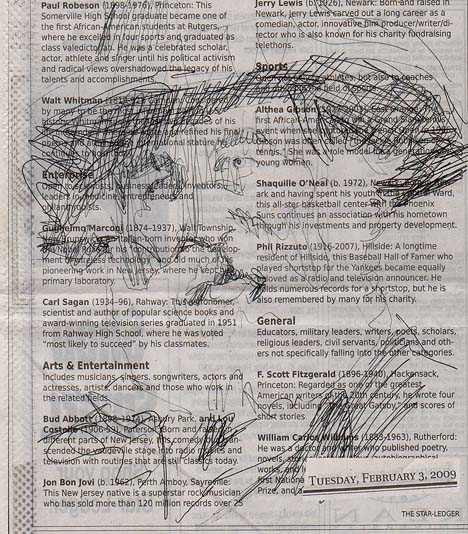 Paul Robeson (1898-1976), Princeton: This
Somerville High School graduate became one of
the first African-American students at Rutgers,
where he excelled in four sports and graduated as
class valedictorian. He was a celebrated scholar,
actor, athlete and singer until his political activism
and radical views overshadowed the legacy of his
talents and accomplishments.
Walt Whitman
by many to be the
of his
and refined his final
stature he
Enterprise
Open to scientists, business leaders, inventors,
leaders in medicine, entrepreneurs and
philanthropists.
Guglielmo Marconi (1874-1937), Wall Township,
New Brunswick: Italian-born inventor who won
the Nobel Prize for his contributions to the develop-
ment of wireless technology did much of his
pioneering work in New Jersey, where he kept his
primary laboratory.
Carl Sagan (1934-96), Rahway: This astronomer,
scientist and author of popular science books and
award-winning television series graduated in 1951
from Rahway High School, where he was voted
"most likely to succeed" by his classmates.
Arts & Entertainment
Includes musicians, singers, songwriters, actors and
actresses, artists, dancers and those who work in
the related fields.
Bud Abbott (1898-1974), Asbury Park, and Lou
Costello (1906-59), Paterson: Born and raised in
different parts of New Jersey, this comedy duo tran-
scended the vaudeville stage with radio movies and
television with routines that are still classics today.
Jon Bon Jovi (b. 1962), Perth Amboy, Sayreville:
This New Jersey native is a superstar rock musician
who has sold more than 120 million records over 25
Jerry Lewis (b. 1926), Newark: Born and raised in
Newark, Jerry Lewis carved out a long career as a
comedian, actor, innovative film producer/writer/di-
rector who is also known for his charity fundraising
telethons.
Sports
athletes, but also to coaches
and the field of sports.
Althea Gibson (1927-2003), East Orange: The
first African-American to win a Grand Slam tennis
event when she
Gibson was often called "the Jackie Robinson of
tennis." She was a role model for a generation of
young women.
Shaquille O'Neal (b. 1972), Newark:
ark and having spent his youth Ward,
this all-star basketball center with the Phoenix
Suns continues an association with his hometown
through his investments and property development.
Phil Rizzuto (1916-2007), Hillside: A longtime
resident of Hillside, this Baseball Hall of Famer who
played shortstop for the Yankees became equally
beloved as a radio and television announcer. He
holds numerous records for a shortstop, but he is
also remembered by many for his charity.
General
Educators, military leaders, writers, poets, scholars,
religious leaders, civil servants, politicians and oth-
ers not specifically falling into the other categories.
F. Scott Fitzgerald (1896-1940), Hackensack,
Princeton: Regarded as one of the greatest
American writers of the 20th century, he wrote four
novels, including "The Great Gatsby," and scores of
short stories.
William Carlos Williams (1883-1963), Rutherford:
He was a doctor and writer who published poetry,
novels, autobiographical
works, and
first Nationa
Prize, and a
TUESDAY, FEBRUARY 3, 2009
THE STAR-LEDGER